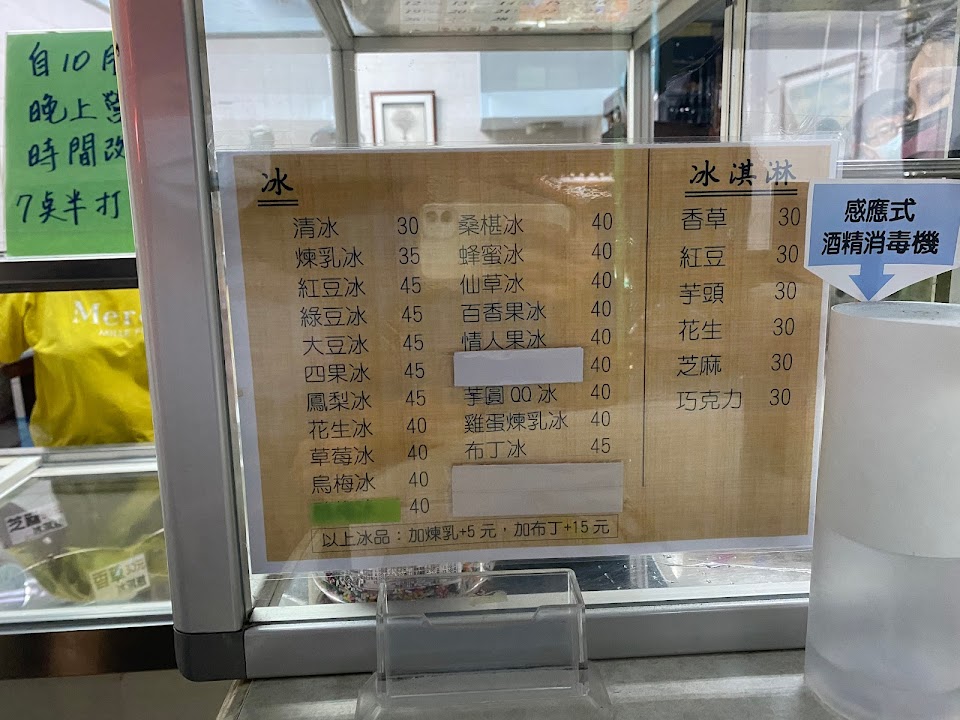 自10月
晚上
時間改
7桌半打
冰
清冰 30
煉乳冰 35
紅豆冰 45
綠豆冰 45
大豆冰 45
四果冰 45
鳳梨冰 45
花生冰 40
草莓冰 40
烏梅冰 40
40
桑椹冰 40
蜂蜜冰 40
仙草冰 40
百香果冰 40
情人果冰 40
40
芋圓QQ冰 40
雞蛋煉乳冰 40
布丁冰 45
以上冰品：加煉乳+5元，加布丁+15元
冰淇淋
香草 30
紅豆 30
芋頭 30
花生 30
芝麻 30
巧克力 30
感應式
酒精消毒機
Mer
芝麻